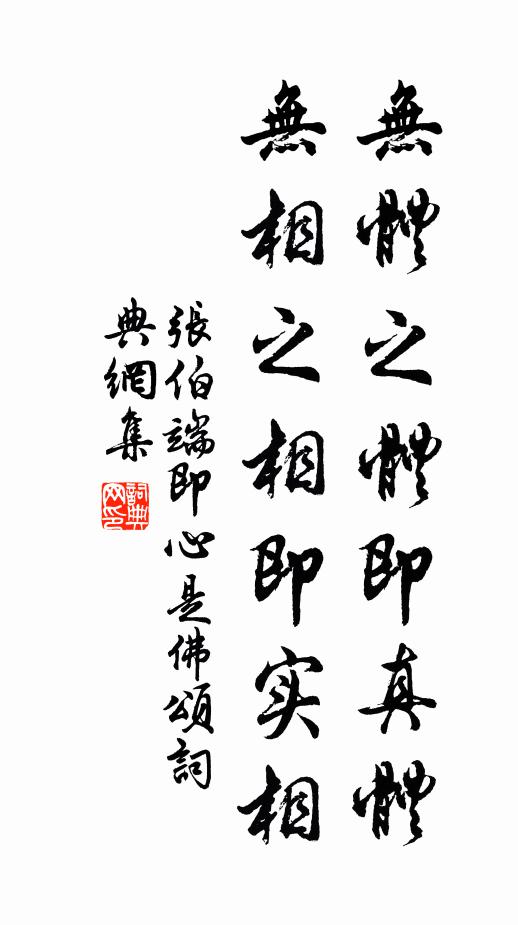 無體之體即真體
無相之相即实相
張伯端即心是佛頌詞
典網集
詞典
网印